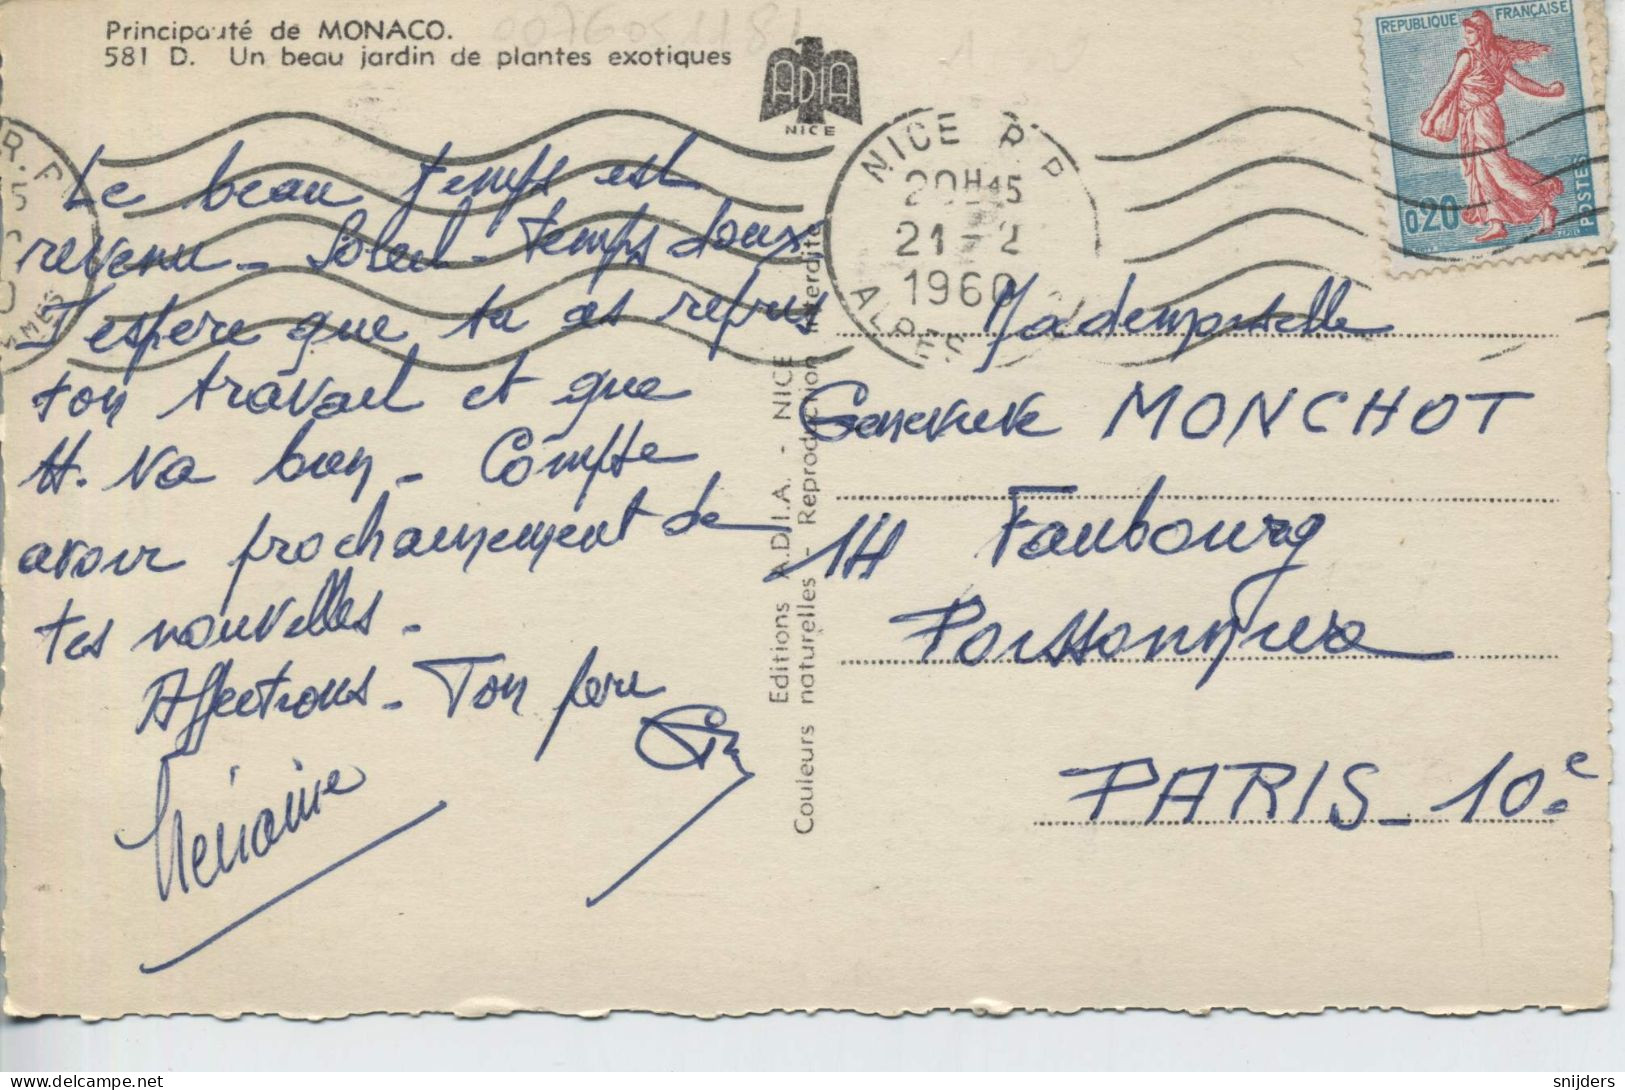 Principauté de MONACO.
581 D. Un beau jardin de plantes exotiques
ADIA
NICE
RÉPUBLIQUE FRANÇAISE
0,20
POSTES
NICE R.P.
20H15
21-2
1960
Le beau temps est
revenu - Soleil - temps doux,
J'espère que tu as repris
ton travail et que
H. va bien - Compte
avoir prochainement de
tes nouvelles -
Affections - Ton père
Mademoiselle
Geneviève MONCHOT
114 Faubourg
Poissonnière
PARIS - 10e
Editions A.D.I.A. - NICE
Couleurs naturelles - Reproduction interdite
snijders